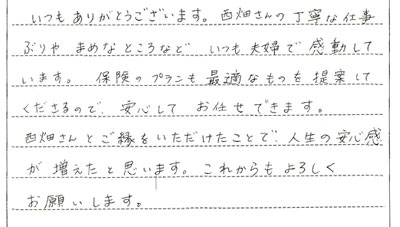 いつもありがとうございます。西畑さんの丁寧な仕事
ぶりや まめなところなど いつも夫婦で感動して
います。 保険のプランも最適なものを提案して
くださるので、安心して お任せできます。
西畑さんとご縁をいただけたことで、人生の安心感
が 増えたと思います。これからもよろしく
お願いします。